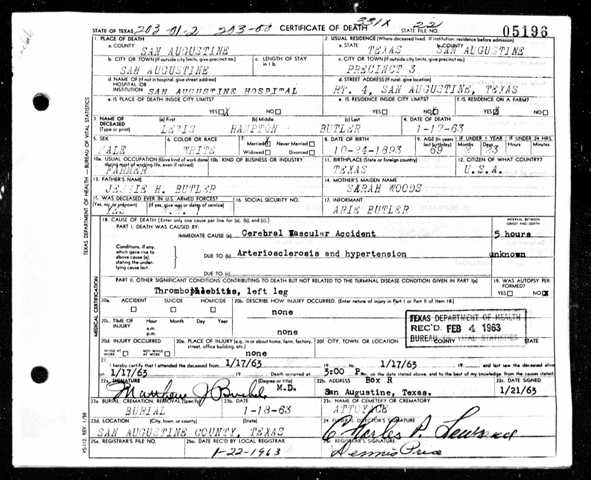 STATE OF TEXAS 203-01-2 203-00 CERTIFICATE OF DEATH 331X 22 STATE FILE NO. 05196
1. PLACE OF DEATH 2. USUAL RESIDENCE (Where deceased lived. If institution: residence before admission)
a. COUNTY SAN AUGUSTINE a. STATE TEXAS b. COUNTY SAN AUGUSTINE
b. CITY OR TOWN (If outside city limits, give precinct no.) c. LENGTH OF STAY in 1 b. c. CITY OR TOWN (If outside city limits, give precinct no.)
SAN AUGUSTINE PRECINCT 3
d. NAME OF (If not in hospital, give street address) HOSPITAL OR INSTITUTION SAN AUGUSTINE HOSPITAL d. STREET ADDRESS (If rural, give location) RT. 4, SAN AUGUSTINE, TEXAS
e. IS PLACE OF DEATH INSIDE CITY LIMITS? YES NO e. IS RESIDENCE INSIDE CITY LIMITS? YES NO f. IS RESIDENCE ON A FARM? YES NO
3. NAME OF DECEASED (Type or print) (a) First (b) Middle (c) Last 4. DATE OF DEATH
LEWIS HAMPTON BUTLER 1-17-63
5. SEX 6. COLOR OR RACE 7. Married Never Married Widowed Divorced 8. DATE OF BIRTH 9. AGE (In years last birthday) IF UNDER 1 YEAR IF UNDER 24 HRS.
MALE WHITE 10-24-1893 69 Hours Min.
10a. USUAL OCCUPATION (Give kind of work done during most of working life, even if retired) 10b. KIND OF BUSINESS OR INDUSTRY 11. BIRTHPLACE (State or foreign country) 12. CITIZEN OF WHAT COUNTRY?
FARMER TEXAS U.S.A.
13. FATHER'S NAME 14. MOTHER'S MAIDEN NAME
H. BUTLER SARAH WOODS
15. WAS DECEASED EVER IN U.S. ARMED FORCES? 16. SOCIAL SECURITY NO. 17. INFORMANT
(Yes, no, or unknown) (If yes, give war or dates of service) YES ARIE BUTLER
18. CAUSE OF DEATH [Enter only one cause per line for (a), (b), and (c).] INTERVAL BETWEEN ONSET AND DEATH
PART I. DEATH WAS CAUSED BY:
IMMEDIATE CAUSE (a) Cerebral Vascular Accident 5 hours
Conditions, if any, which gave rise to above cause (a), stating the underlying cause last. DUE TO (b) Arteriosclerosis and hypertension unknown
DUE TO (c)
PART II. OTHER SIGNIFICANT CONDITIONS CONTRIBUTING TO DEATH BUT NOT RELATED TO THE TERMINAL DISEASE CONDITION GIVEN IN PART I (a) 19. WAS AUTOPSY PERFORMED? YES NO
Thrombophlebitis, left leg
20a. ACCIDENT SUICIDE HOMICIDE 20b. DESCRIBE HOW INJURY OCCURRED. (Enter nature of injury in Part I or Part II of item 18.)
none
20c. TIME OF INJURY Hour Month Day Year a.m. p.m.
TEXAS DEPARTMENT OF HEALTH
REC'D FEB 4 1963
BUREAU OF VITAL STATISTICS
20d. INJURY OCCURRED WHILE AT WORK NOT WHILE AT WORK 20e. PLACE OF INJURY (e.g., in or about home, farm, factory, street, office building, etc.) 20f. CITY, TOWN, OR LOCATION COUNTY STATE
none
21. I hereby certify that I attended the deceased from 1/17/63 to 1/17/63 and last saw the deceased alive on
1/17/63 Death occurred at 3:00 P.m. on the date stated above; and to the best of my knowledge, from the causes stated.
22a. SIGNATURE (Degree or title) 22b. ADDRESS 22c. DATE SIGNED
M.D. Box R San Augustine, Texas. 1/21/63
23a. BURIAL, CREMATION, REMOVAL (Specify) 23b. DATE 23c. NAME OF CEMETERY OR CREMATORY
BURIAL 1-18-63 ATTOYACE
23d. LOCATION (City, town, or county) (State) 24. FUNERAL DIRECTOR'S SIGNATURE
SAN AUGUSTINE COUNTY, TEXAS
25a. REGISTRAR'S FILE NO. 25b. DATE REC'D BY LOCAL REGISTRAR 25c. REGISTRAR'S SIGNATURE
1-22-1963
TEXAS DEPARTMENT OF HEALTH - BUREAU OF VITAL STATISTICS
MEDICAL CERTIFICATION